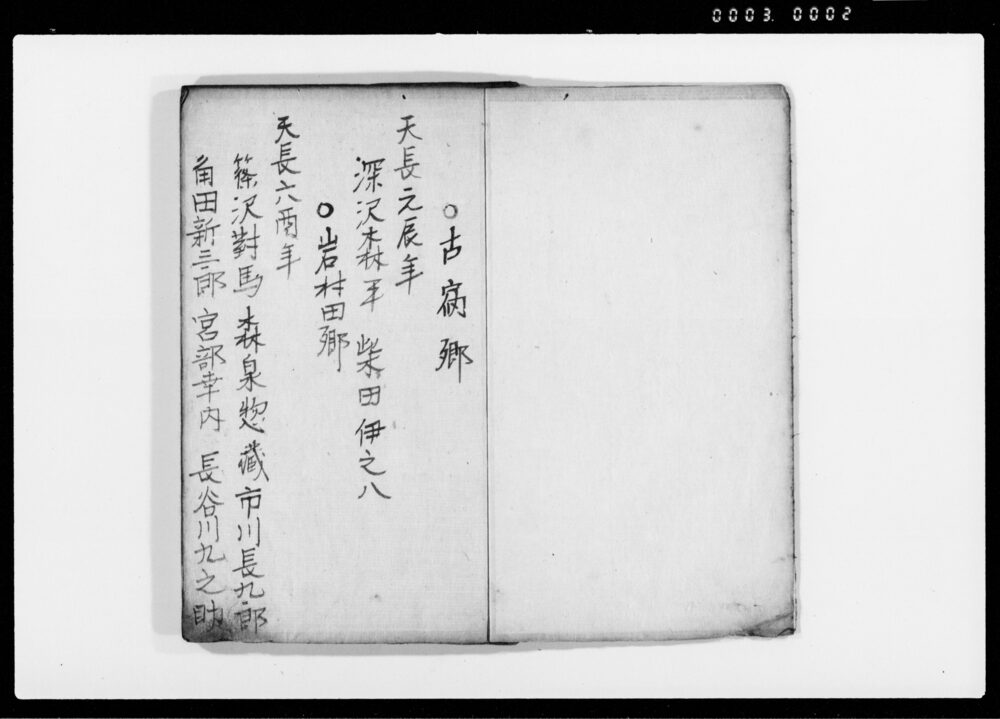 0003. 0002
○古宿郷
天長元辰年
深沢森平 柴田伊之八
○岩村田郷
天長六酉年
篠沢對馬 森泉惣藏 市川長九郎
角田新三郎 宮部幸内 長谷川九之助